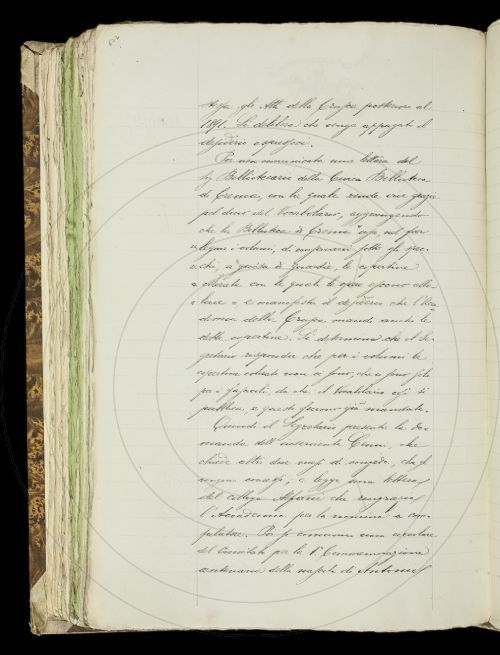 gli Atti della Crusca posteriori al
1891. Si delibera che venga appagato il
desiderio espresso.
Poi vien comunicata una lettera del
Bibliotecario della Civica Biblioteca
di Cremona, con la quale rende vive grazie
pel dono del Vocabolario, aggiungendo
che la Biblioteca di Cremona usa, nel far
legare i volumi, di
a guisa di guardie, le copertine
con le quali
e manifesta il desiderio che l'Acca-
demia della Crusca mandi anche le
dette copertine. Si determina che il Se-
gretario risponda che per i volumi le
copertine non ci sono, che ci sono solo
per i fascicoli, da che il Vocabolario si
pubblica, e queste furono già mandate.
Quindi il Segretario presenta la do-
manda dell'inserviente che
chiede altri due mesi di congedo, che
vengono e legge una lettera
del collega Alfani che ringrazia
l'Accademia per la nomina a com-
pilatore. Poi si comunica una circolare
del Comitato per la Commemorazione
centenaria della nascita di Antonio